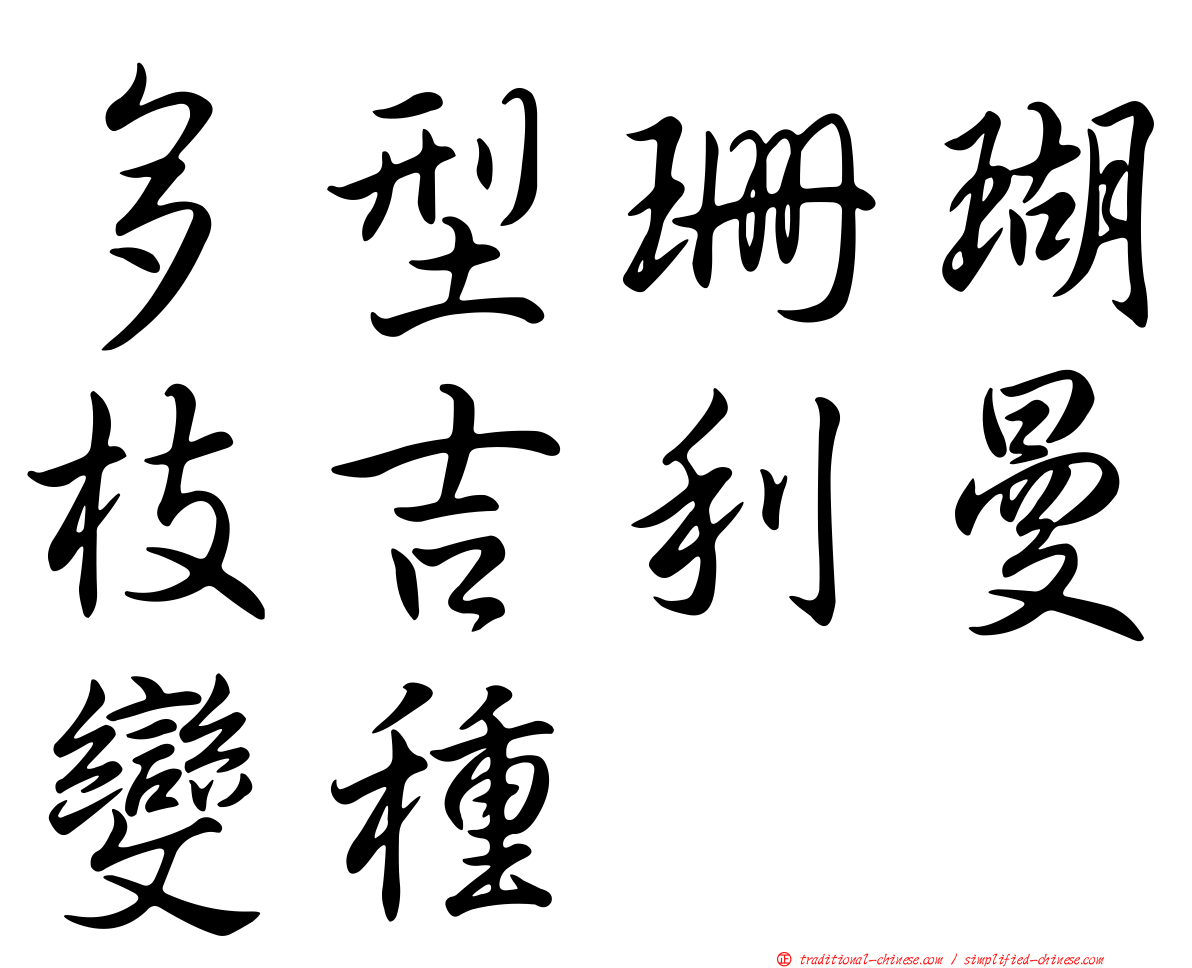 多型珊瑚
枝吉利曼
變種
㊣ traditional-chinese.com / simplified-chinese.com